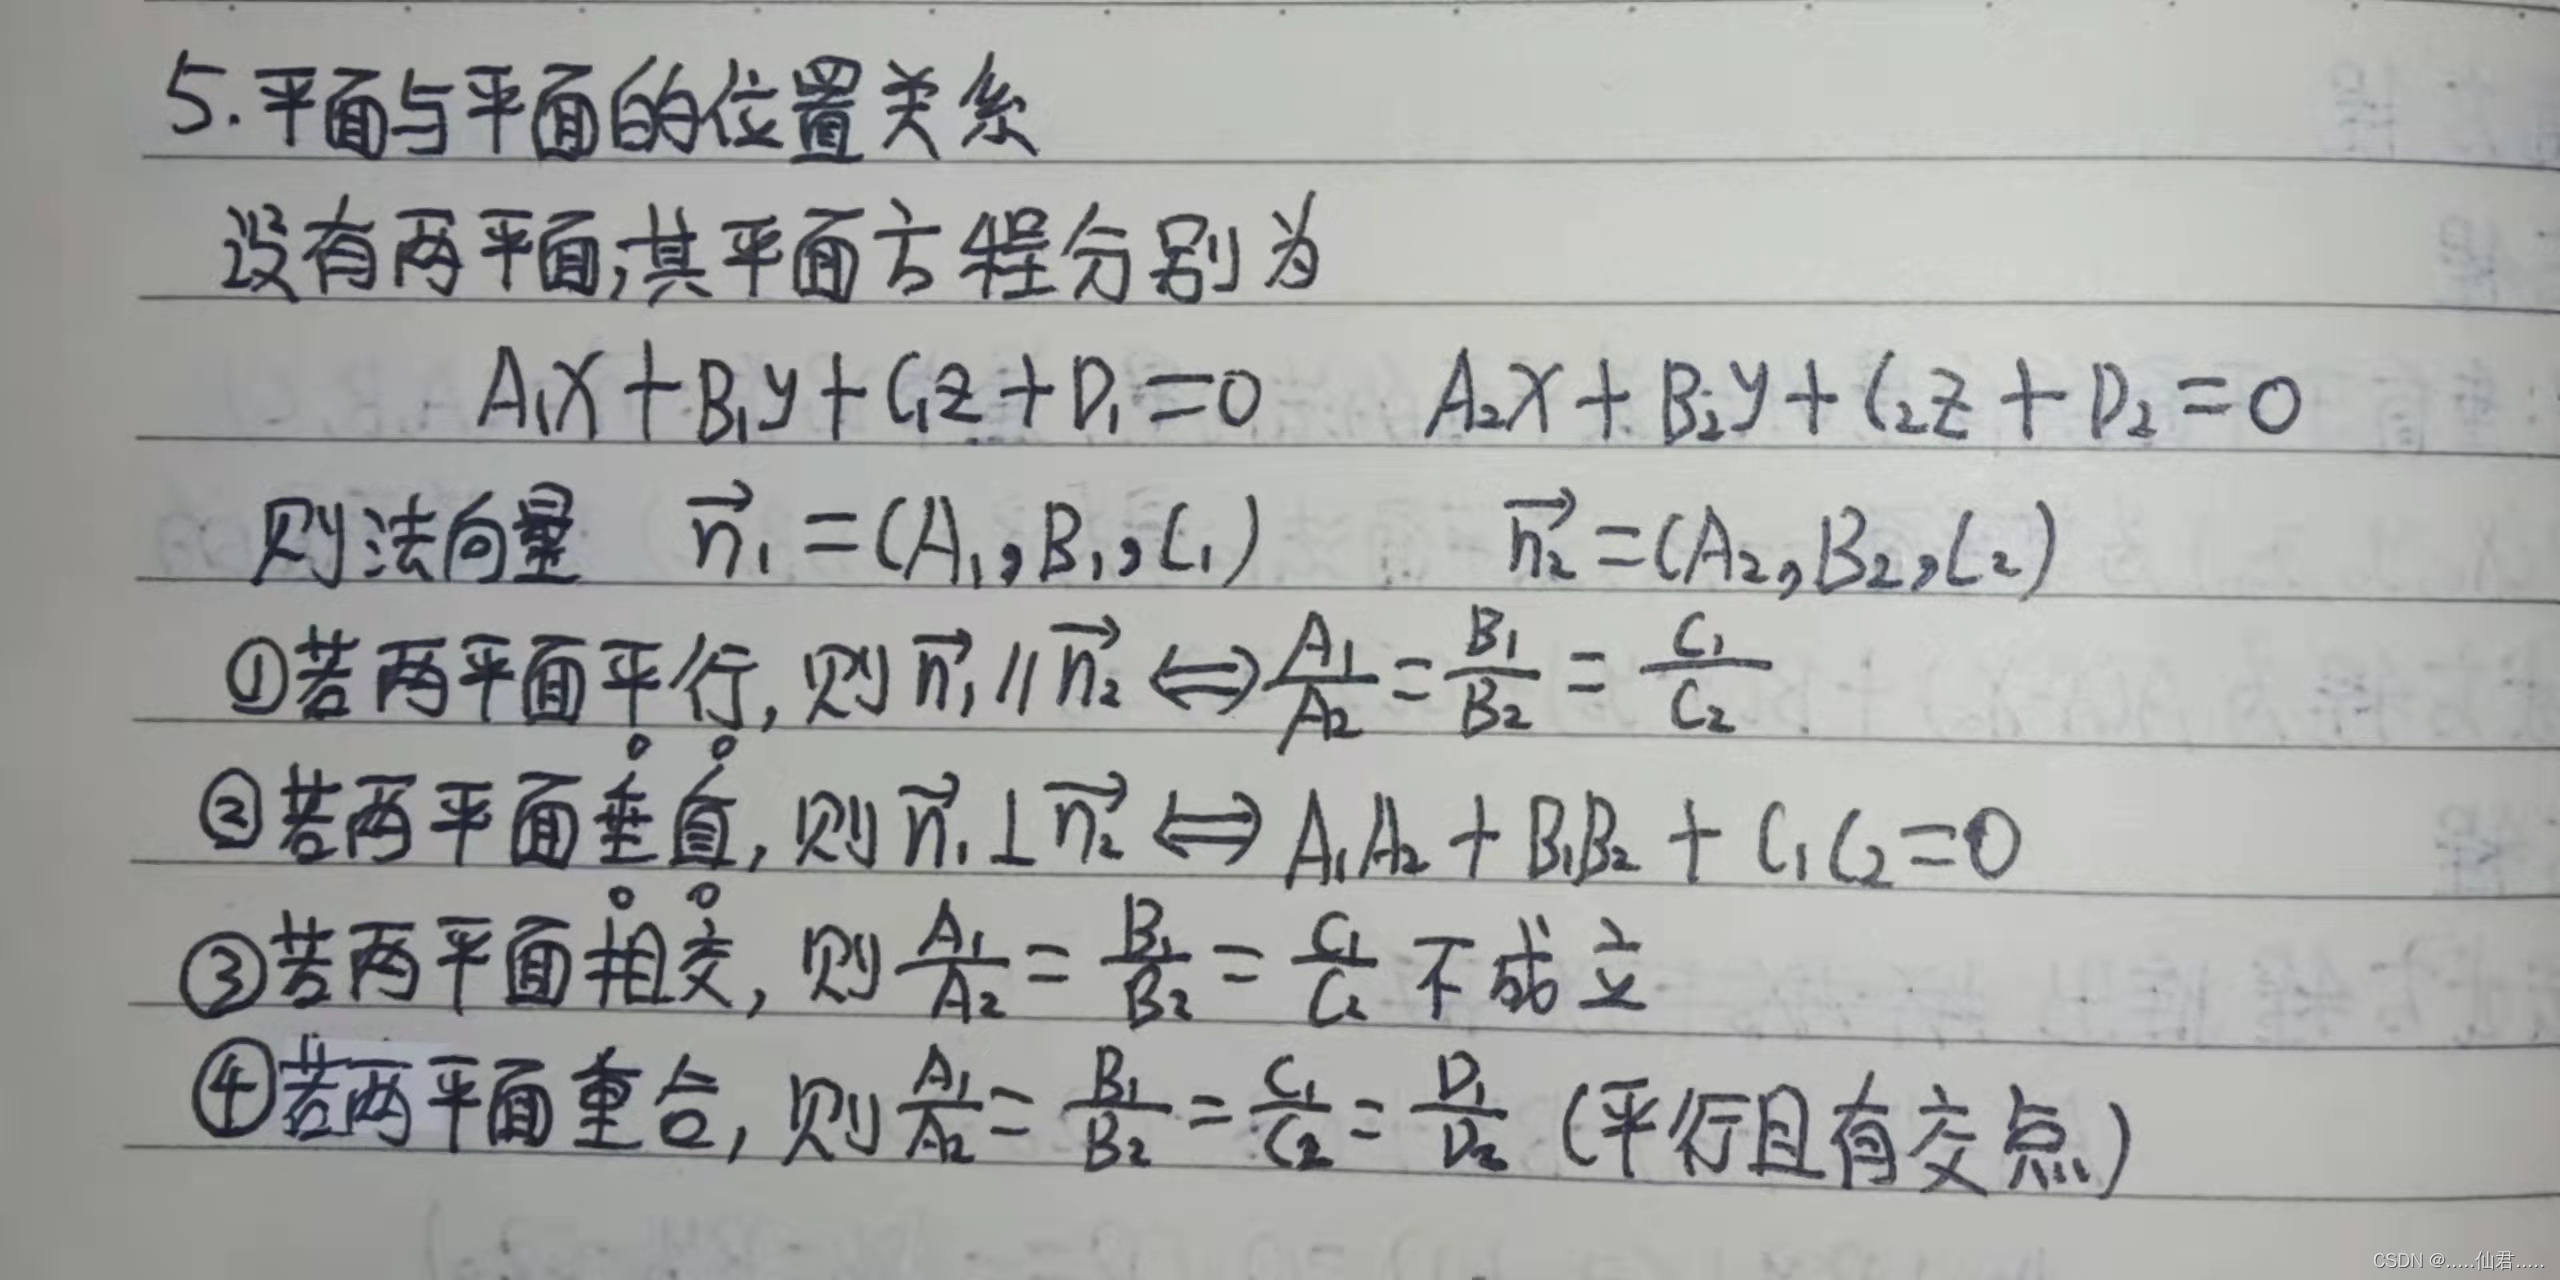 5.平面与平面的位置关系
设有两平面,其平面方程分别为
A₁x+B₁y+C₁z+D₁=0 A₂x+B₂y+C₂z+D₂=0
则法向量 n₁⃗=(A₁,B₁,C₁) n₂⃗=(A₂,B₂,C₂)
①若两平面平行,则n₁⃗∥n₂⃗⇔A₁/A₂=B₁/B₂=C₁/C₂
②若两平面垂直,则n₁⃗⊥n₂⃗⇔A₁A₂+B₁B₂+C₁C₂=0
③若两平面相交,则A₁/A₂=B₁/B₂=C₁/C₂不成立
④若两平面重合,则A₁/A₂=B₁/B₂=C₁/C₂=D₁/D₂(平行且有交点)
CSDN @.....仙君.....